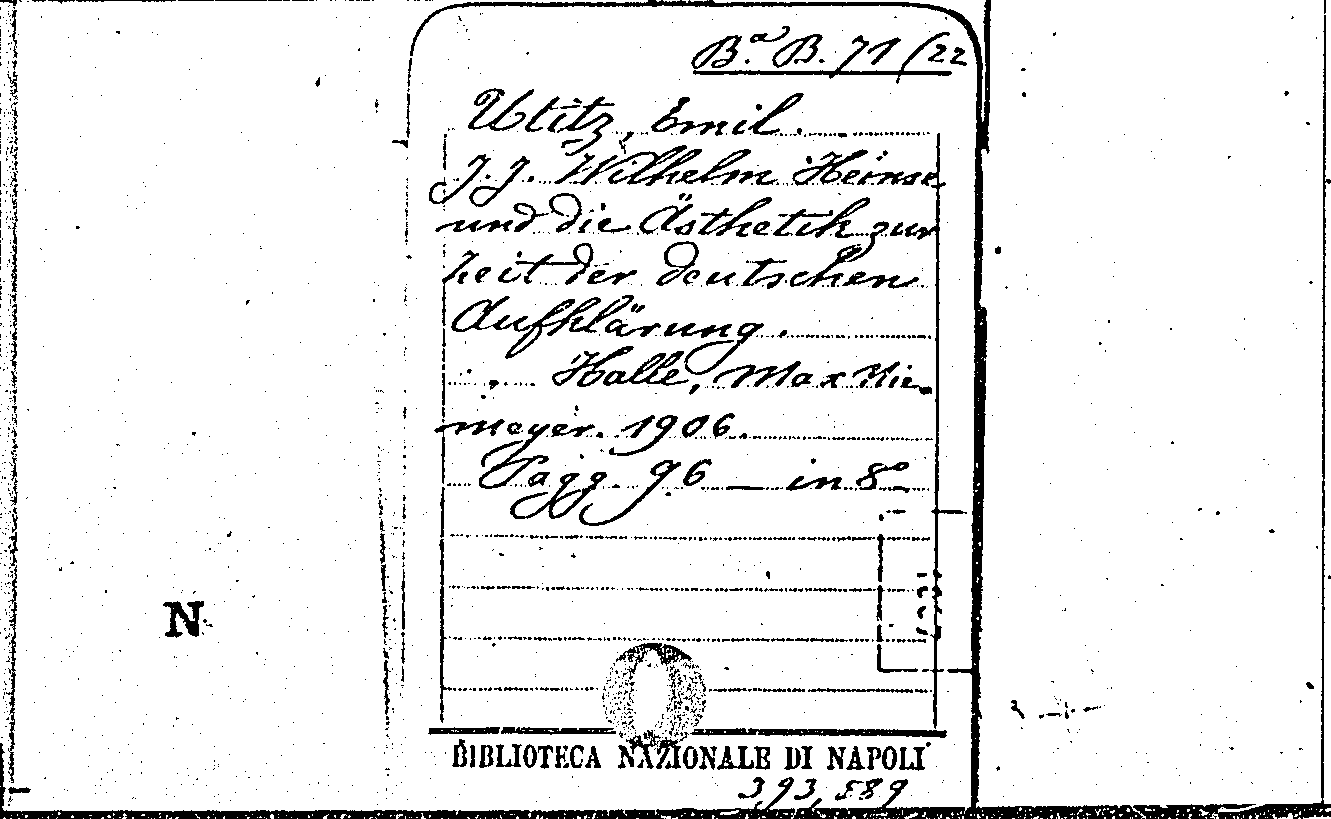 B.ª B. 71 (22
Utitz, Emil.
J. J. Wilhelm Heinse
und die Ästhetik zur
Zeit der deutschen
Aufklärung.
Halle, Max Nie-
meyer. 1906.
Pagg. 96 — in 8º
N
BIBLIOTECA NAZIONALE DI NAPOLI
393,589